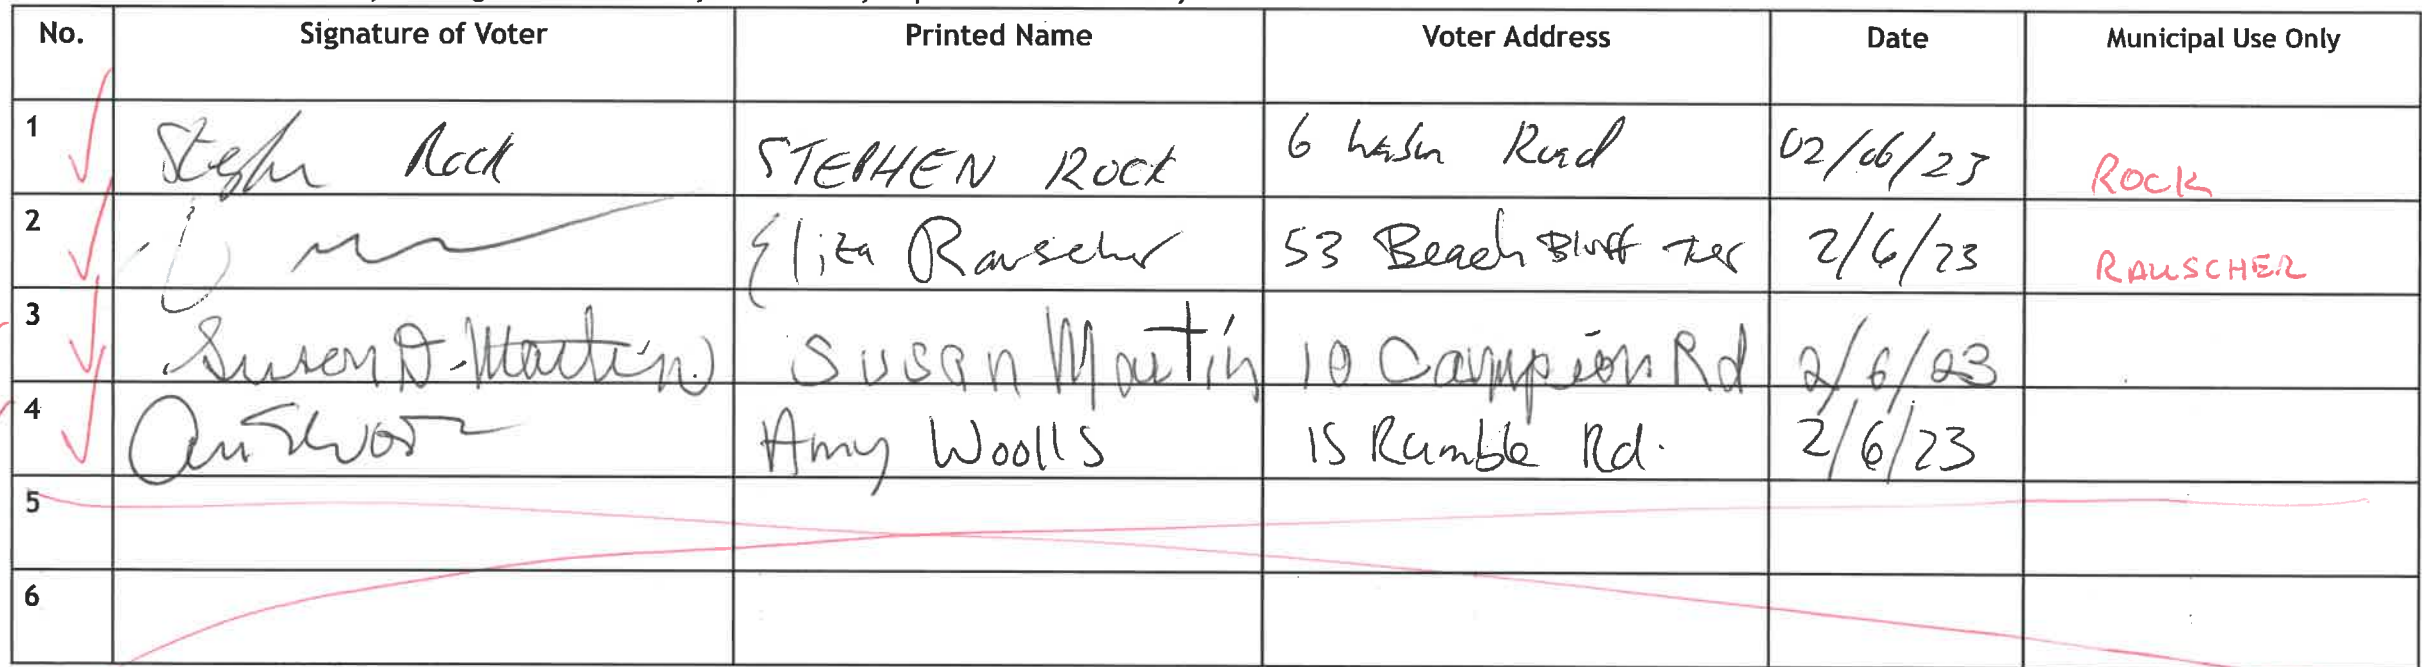 No. Signature of Voter Printed Name Voter Address Date Municipal Use Only
1 Stephen Rock STEPHEN ROCK 6 Road 02/06/23 ROCK
2 Eliza Rauscher 53 Beach Bluff Ter 2/6/23 RAUSCHER
3 Susan D. Martin Susan Martin 10 Campion Rd 2/6/23
4 Amy Woolls 15 Rumble Rd. 2/6/23
5
6